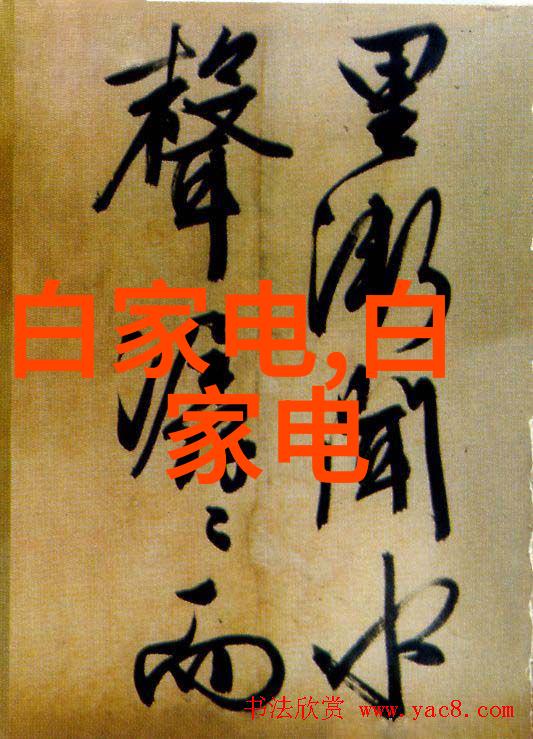 里漸聞水
聲潺〻而
白家电,白
家电
书法欣赏 www.yac8.com